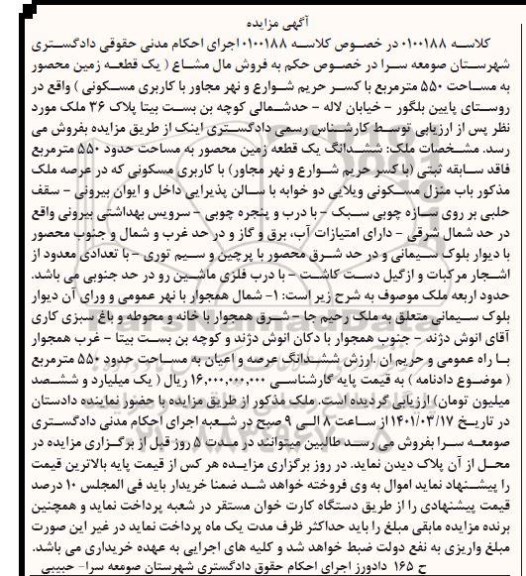 آگهی مزایده
کلاسه ۰۱۰۰۱۸۸ در خصوص کلاسه ۰۱۰۰۱۸۸ اجرای احکام مدنی حقوقی دادگستری
شهرستان صومعه سرا در خصوص حکم به فروش مال مشاع ( یک قطعه زمین محصور
به مساحت ۵۵۰ مترمربع با کسر حریم شوارع و نهر مجاور با کاربری مسکونی ) واقع در
روستای پایین بلگور - خیابان لاله - حدشمالی کوچه بن بست بیتا پلاک ۳۶ ملک مورد
نظر پس از ارزیابی توسط کارشناس رسمی دادگستری اینک از طریق مزایده بفروش می
رسد. مشخصات ملک: ششدانگ یک قطعه زمین محصور به مساحت حدود ۵۵۰ مترمربع
فاقد سابقه ثبتی (با کسر حریم شوارع و نهر مجاور) با کاربری مسکونی که در عرصه ملک
مذکور باب منزل مسکونی ویلایی دو خوابه با سالن پذیرایی داخل و ایوان بیرونی - سقف
حلبی بر روی سازه چوبی سبک - با درب و پنجره چوبی - سرویس بهداشتی بیرونی واقع
در حد شمال شرقی - دارای امتیازات آب، برق و گاز و در حد غرب و شمال و جنوب محصور
با دیوار بلوک سیمانی و در حد شرق محصور با پرچین و سیم توری - با تعدادی معدود از
اشجار مرکبات و ازگیل دست کاشت - با درب فلزی ماشین رو در حد جنوبی می باشد.
حدود اربعه ملک موصوف به شرح زیر است: ۱- شمال همجوار با نهر عمومی و ورای آن دیوار
بلوک سیمانی متعلق به ملک رحیم جا - شرق همجوار با خانه و محوطه و باغ سبزی کاری
آقای انوش دژند - جنوب همجوار با دکان انوش دژند و کوچه بن بست بیتا - غرب همجوار
با راه عمومی و حریم ان .ارزش ششدانگ عرصه و اعیان به مساحت حدود ۵۵۰ مترمربع
( موضوع دادنامه ) به قیمت پایه کارشناسی ۱۶,۰۰۰,۰۰۰,۰۰۰ ریال ( یک میلیارد و ششصد
میلیون تومان) ارزیابی گردیده است. ملک مذکور از طریق مزایده با حضور نماینده دادستان
در تاریخ ۱۴۰۱/۰۳/۱۷ از ساعت ۸ الی ۹ صبح در شعبه اجرای احکام مدنی دادگستری
صومعه سرا بفروش می رسد طالبین میتوانند در مدت ۵ روز قبل از برگزاری مزایده در
محل از آن پلاک دیدن نماید. در روز برگزاری مزایده هر کس از قیمت پایه بالاترین قیمت
را پیشنهاد نماید اموال به وی فروخته خواهد شد ضمنا خریدار باید فی المجلس ۱۰ درصد
قیمت پیشنهادی را از طریق دستگاه کارت خوان مستقر در شعبه پرداخت نماید و همچنین
برنده مزایده مابقی مبلغ را باید حداکثر ظرف مدت یک ماه پرداخت نماید در غیر این صورت
مبلغ واریزی به نفع دولت ضبط خواهد شد و کلیه های اجرایی به عهده خریداری می باشد.
ح ۱۶۵ دادورز اجرای احکام حقوق دادگستری شهرستان صومعه سرا- حبیبی